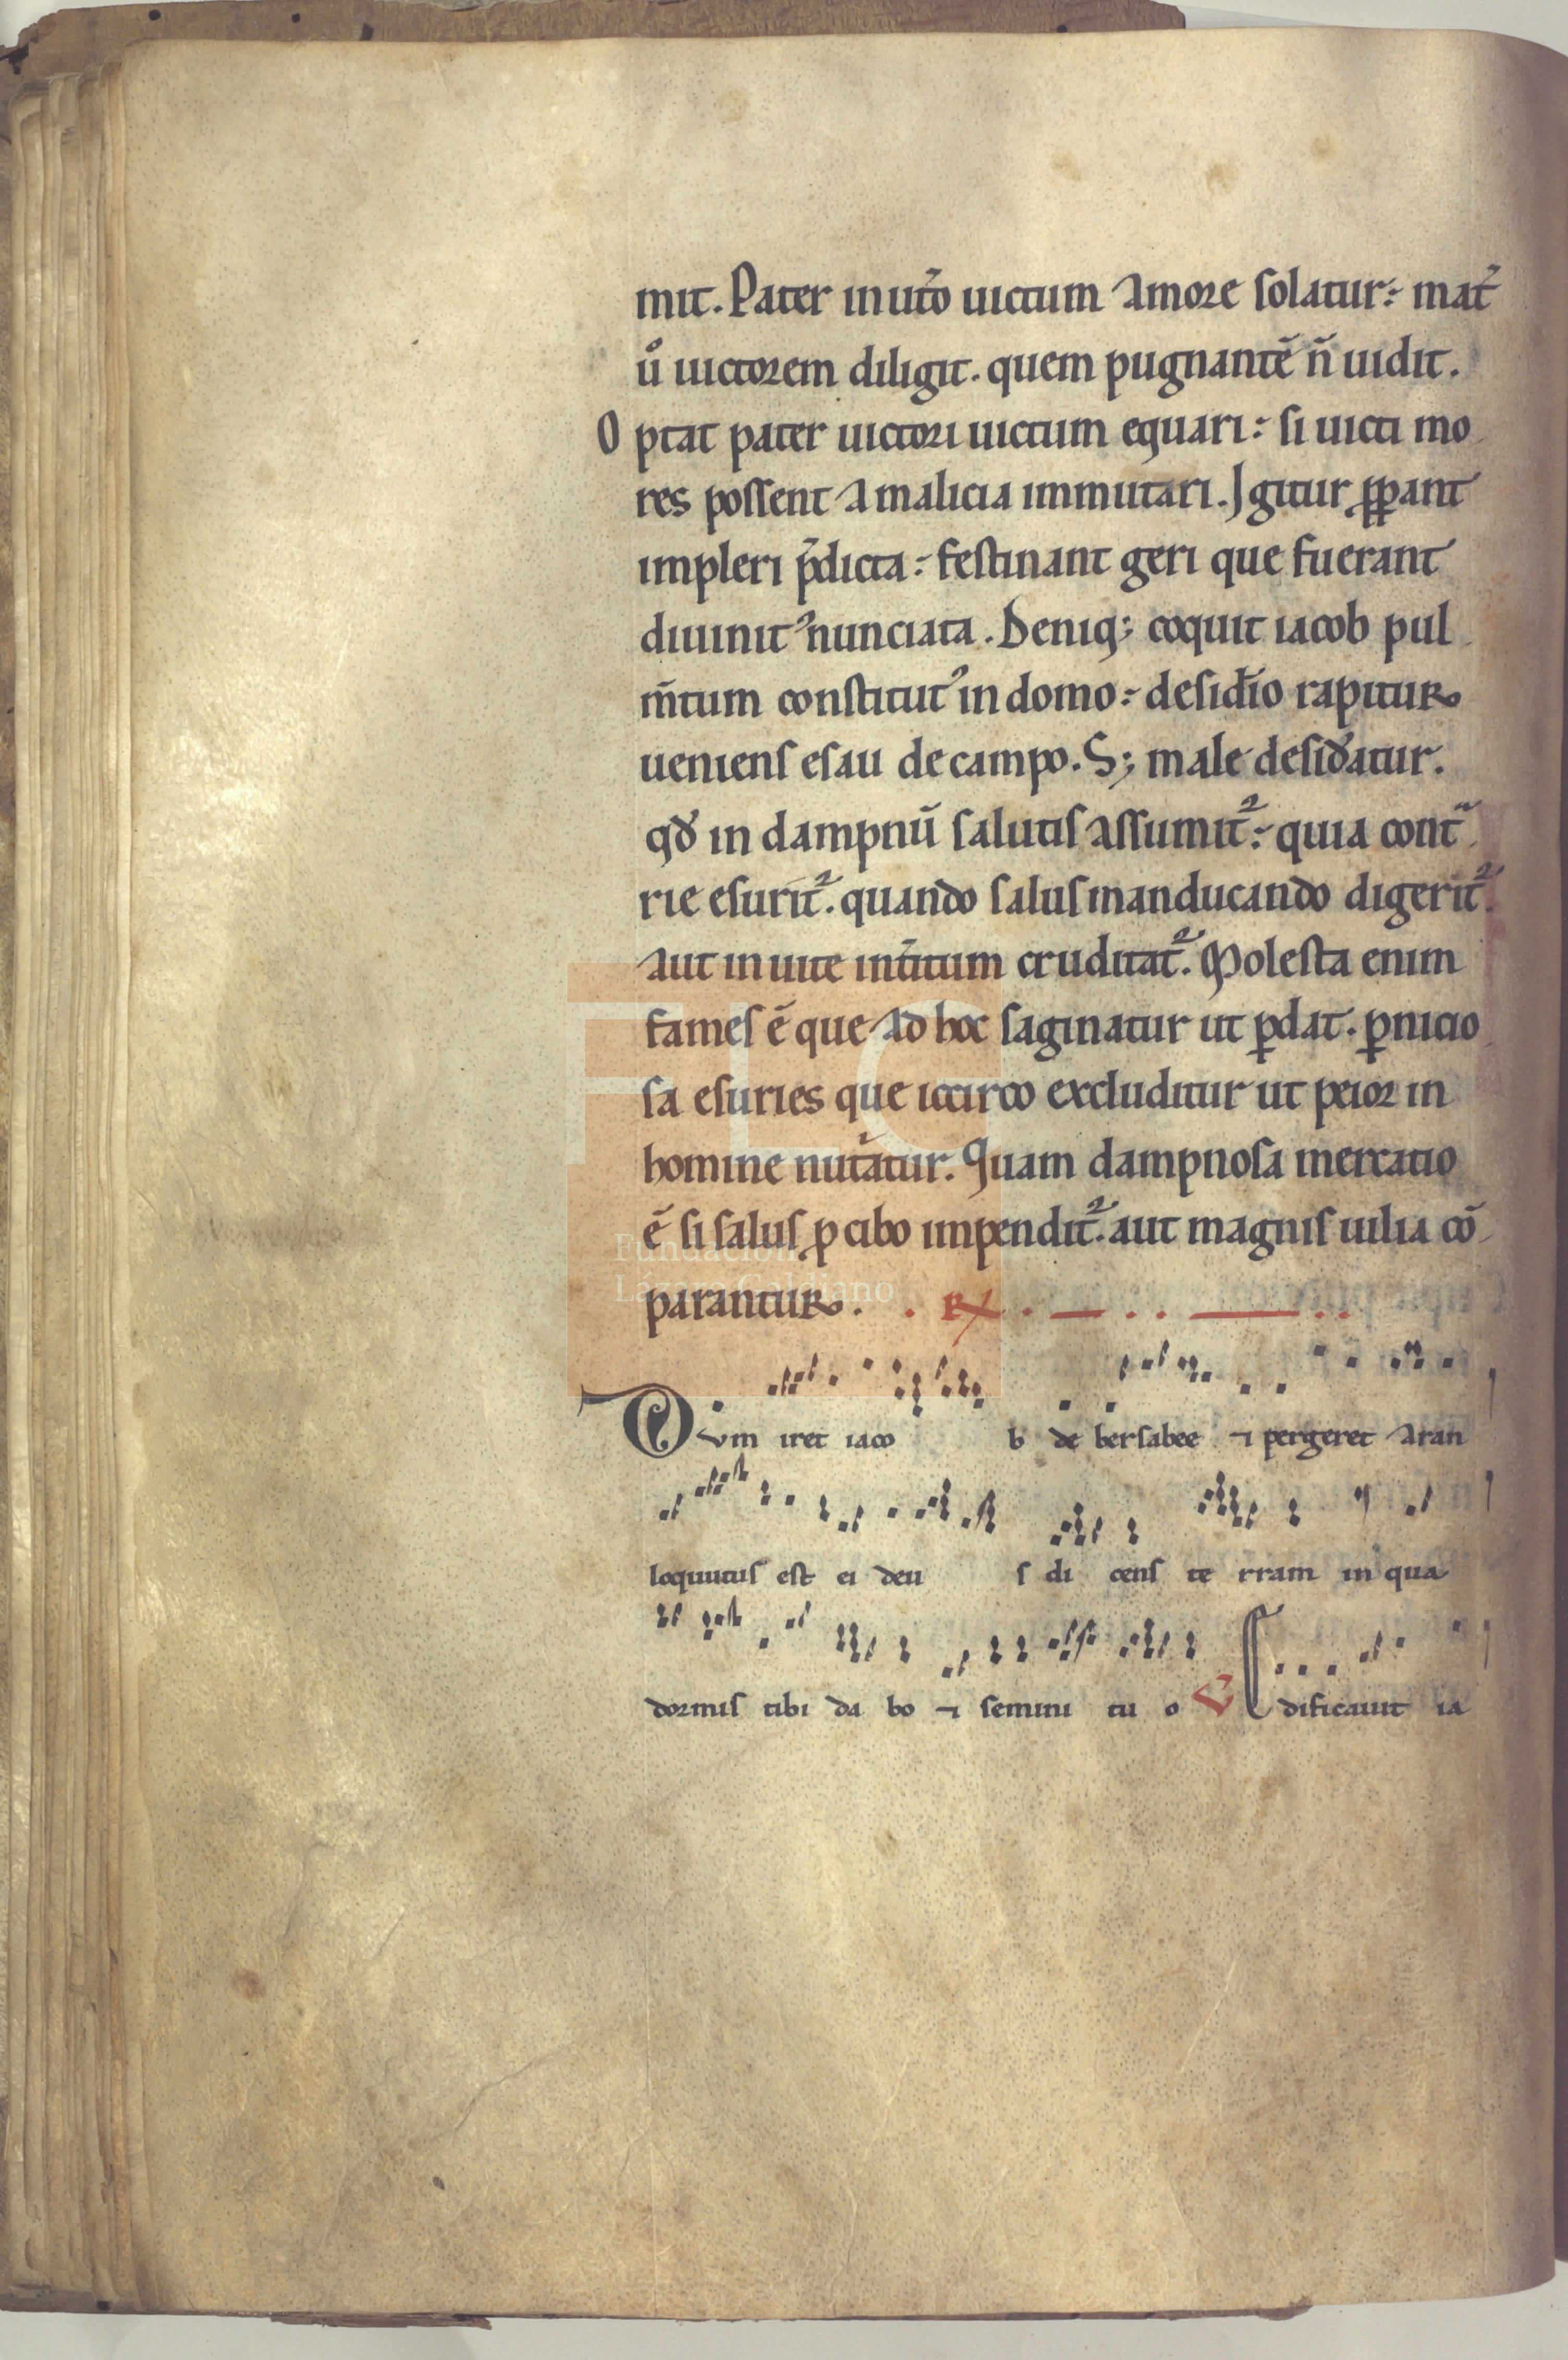 mit. Pater in ut̃o uictum amore solatur: mat̃
ů uictorem diligit. quem pugnantē n̄ uidit.
Optat pater uictori uictum equari: si uicti mo
res possent a malicia immutari. Igitur ꝓꝑant
impleri p̄dicta: festinant geri que fuerant
diuinitꝰ nunciata. Deniq; coquit iacob pul
m̄tum constitutꝰ in domo: desid̄io rapitur
ueniens esau de campo. S; male desid̄atur.
qd̄ in dampnū salutis assumit᷑: quia cont̃
rie esurit᷑. quando salus manducando digerit᷑.
aut in uite int̃itum cruditat᷑. Molesta enim
fames ē que ad hoc saginatur ut ꝑdat. ꝑnicio
sa esuries que iccirco excluditur ut peior in
homine nut̃atur. Quam dampnosa mercatio
ē si salus ꝓ cibo impendit᷑. aut magnis uilia cō
parantur. . ℟ . . . . .
Dvm iret iaco b de bersabee ⁊ pergeret aran
loquutus est ei deu s di cens te rram in qua
dormis tibi da bo ⁊ semini tu o V Edificauit ia
Fundación
Lázaro Galdiano
FLG